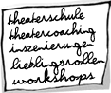 theaterschule
theatercoaching
inszenierungen
lieblingsrollen
workshops